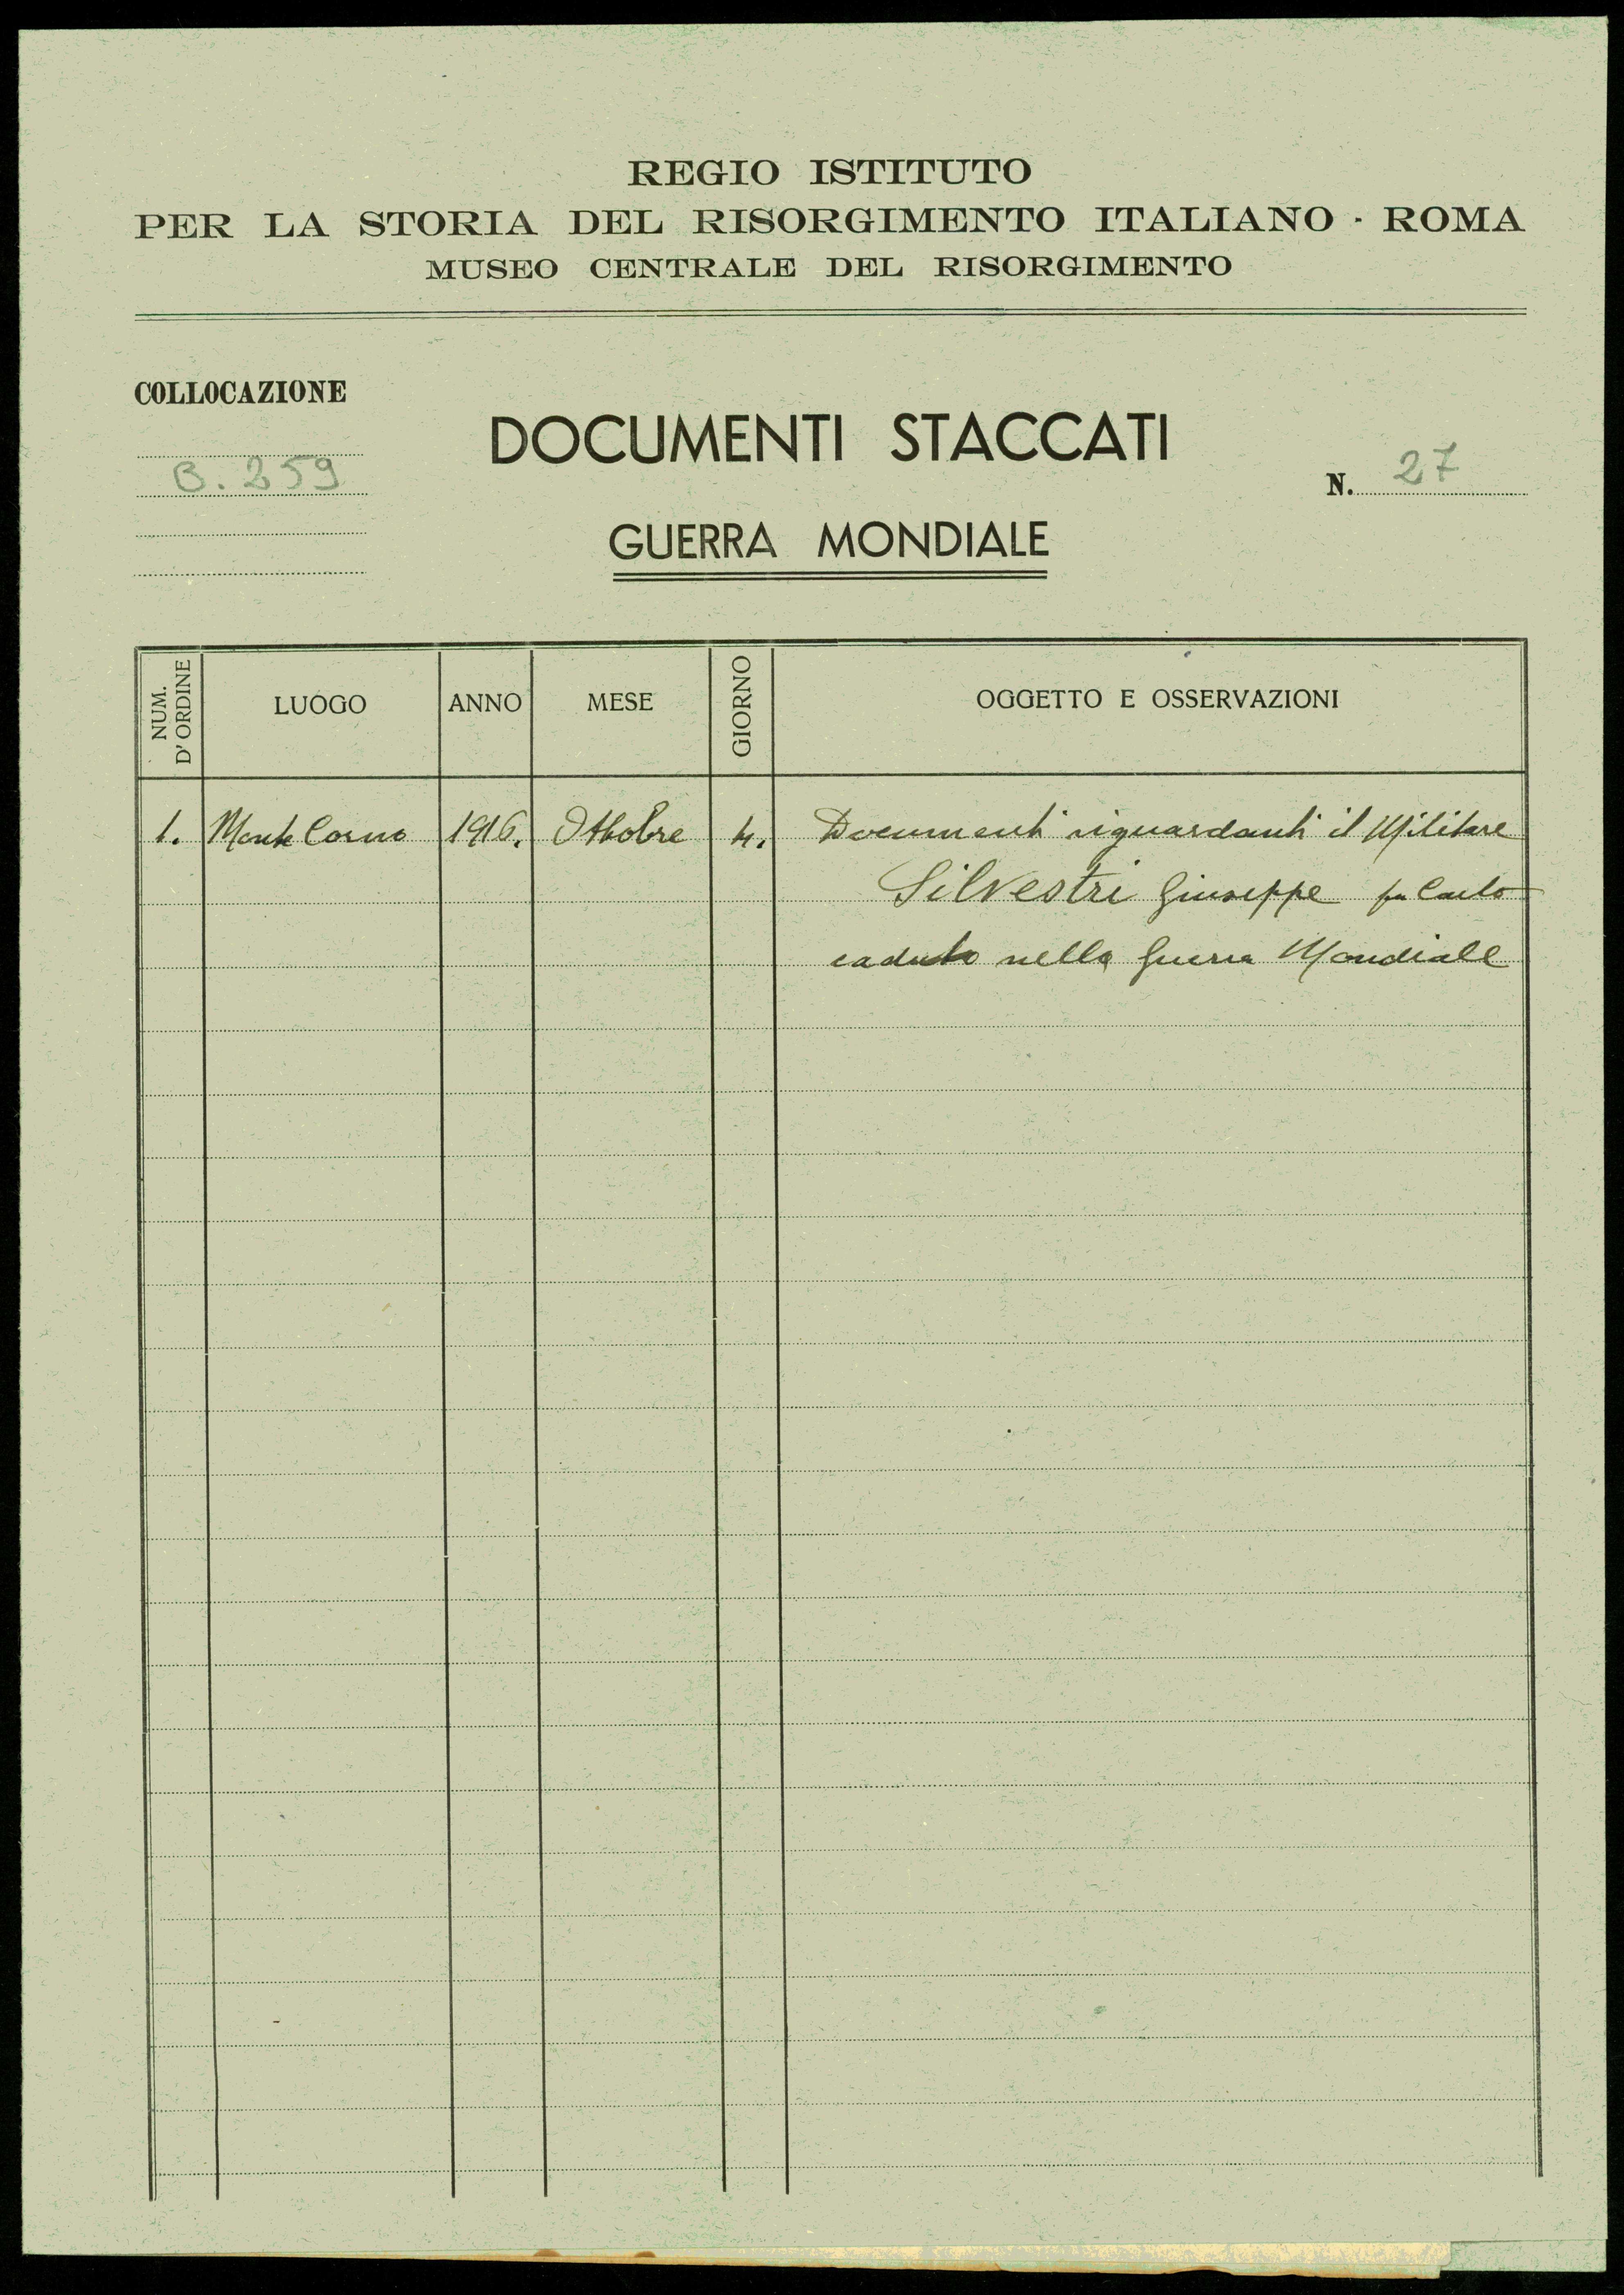 REGIO ISTITUTO
PER LA STORIA DEL RISORGIMENTO ITALIANO - ROMA
MUSEO CENTRALE DEL RISORGIMENTO
COLLOCAZIONE
B. 259
DOCUMENTI STACCATI
N. 27
GUERRA MONDIALE
NUM. D'ORDINE LUOGO ANNO MESE GIORNO OGGETTO E OSSERVAZIONI
1. Monte Corno 1916. Ottobre 4. Documenti riguardanti il Militare
Silvestri Giuseppe fu Carlo
caduto nella Guerra Mondiale